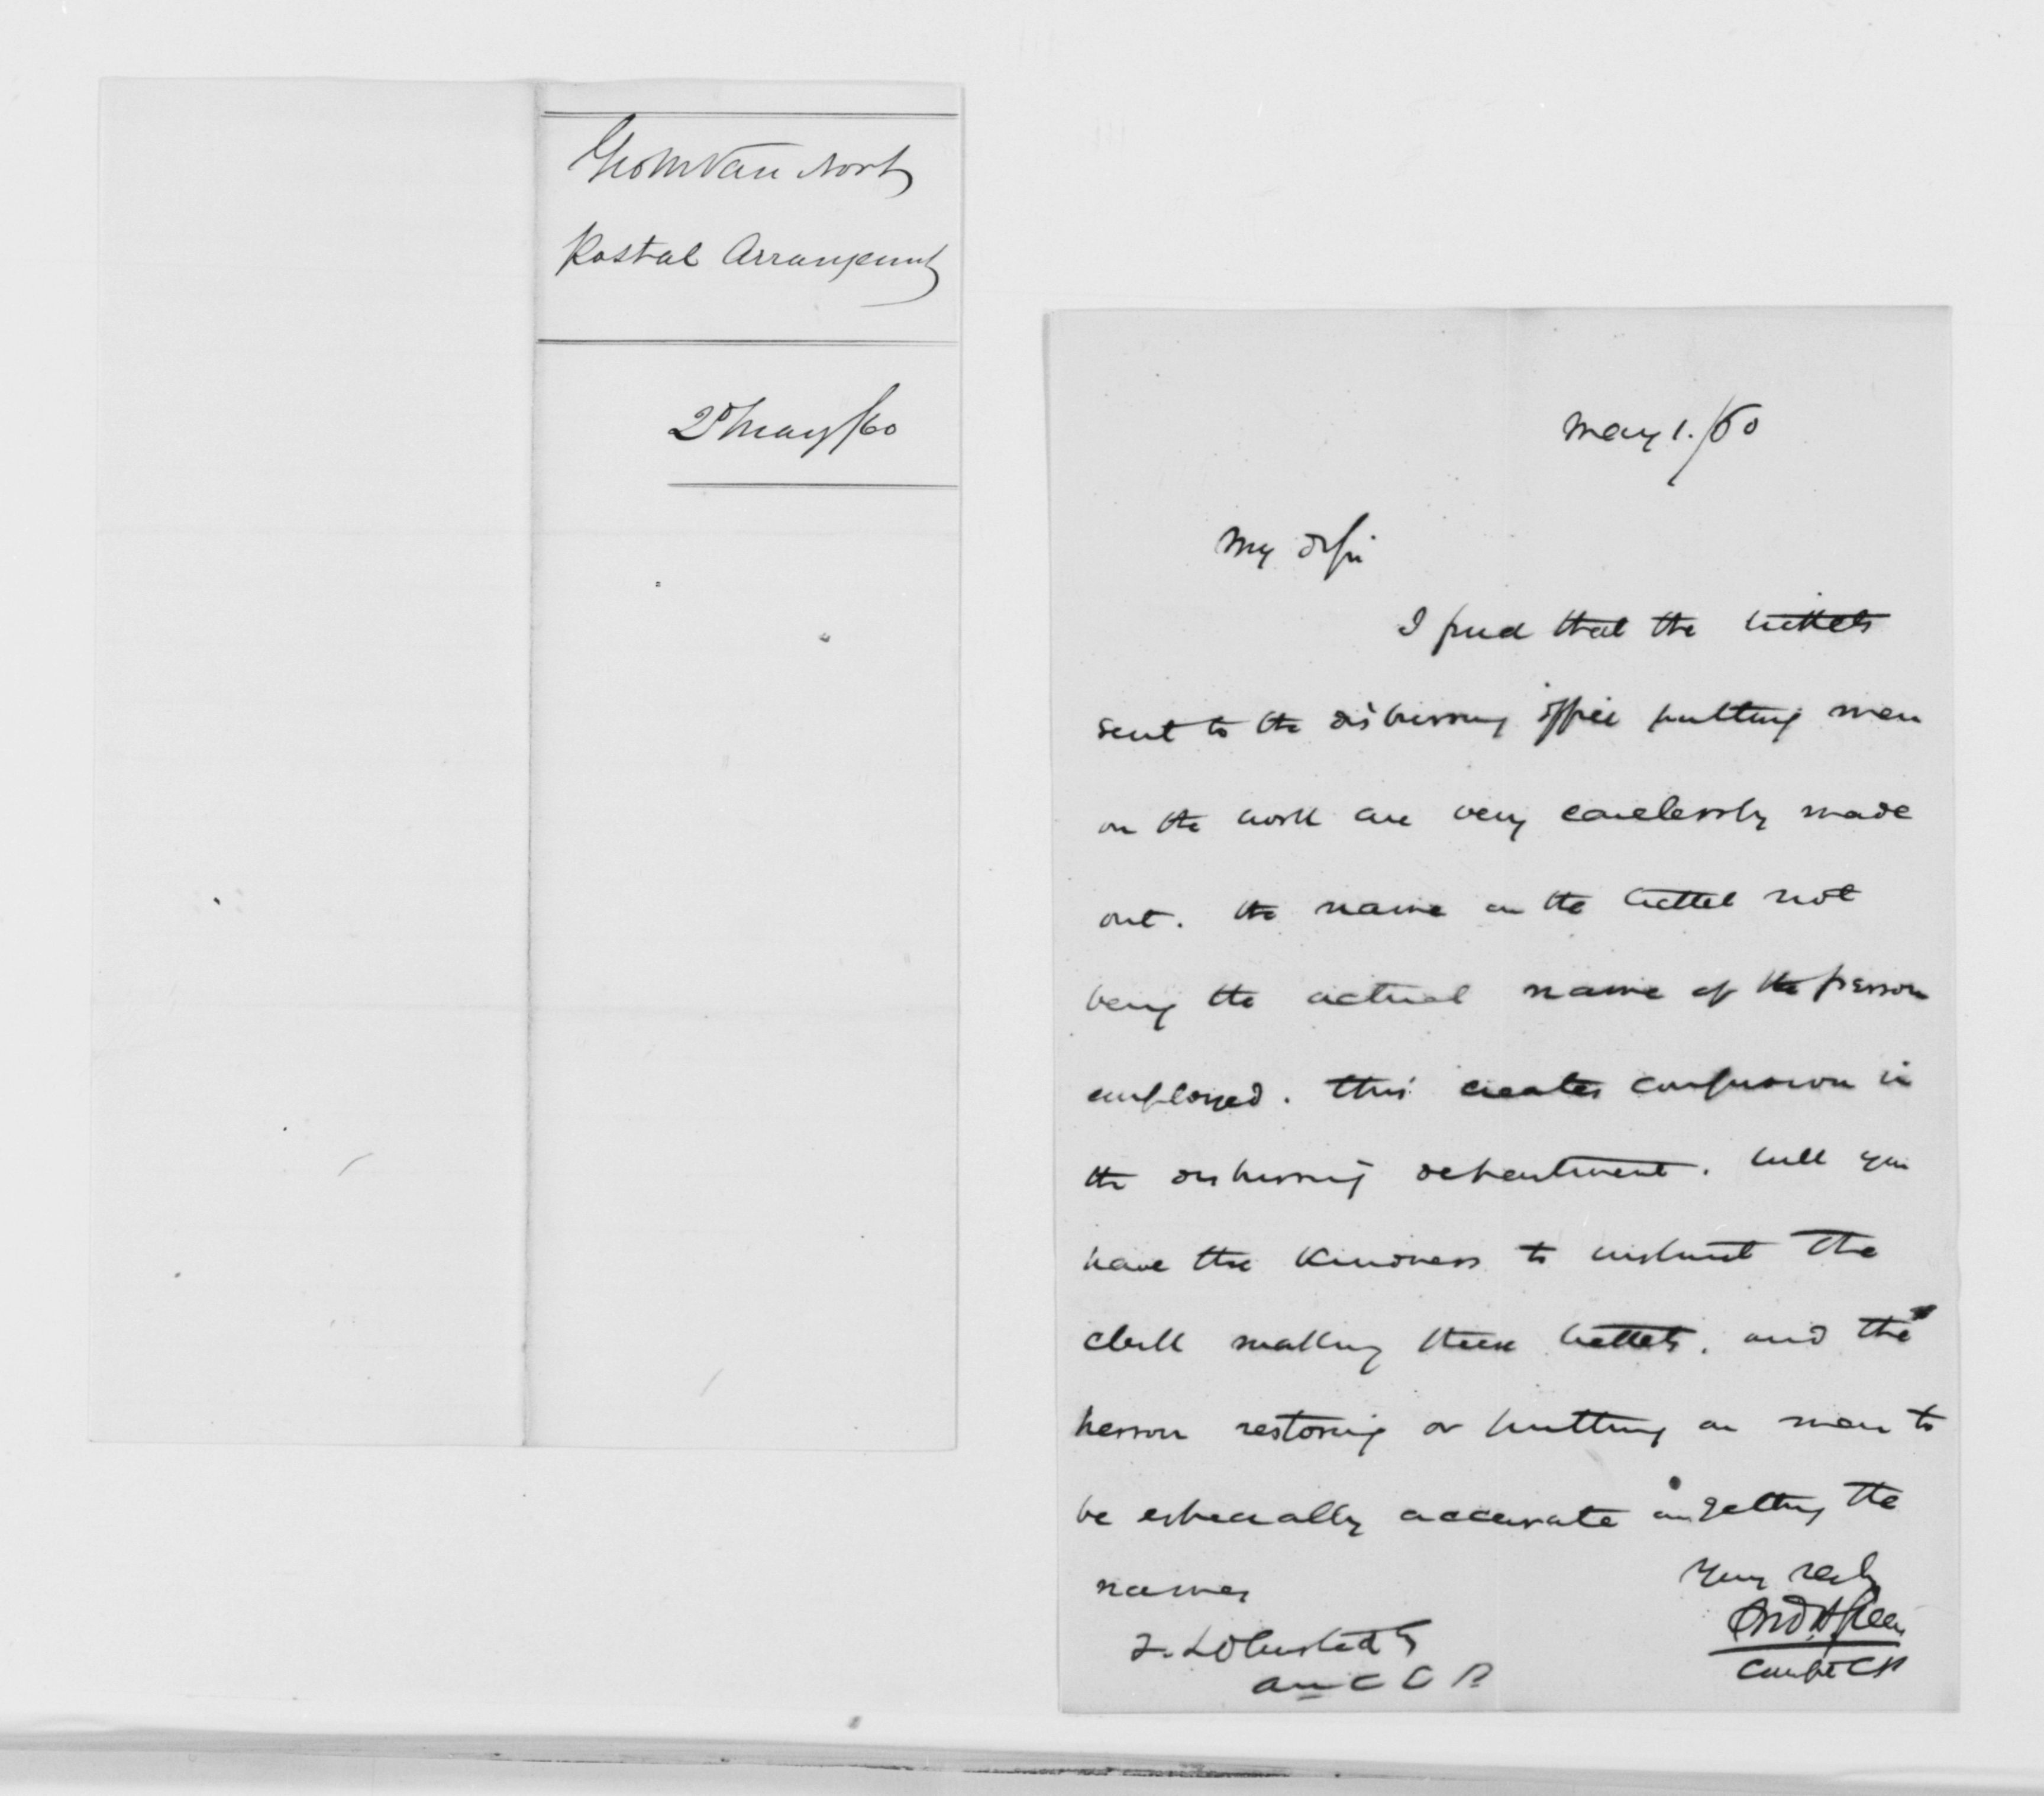 Geo M Van Nort
Postal Arrangement
2d May /60
May 1. /60
My dr Sir
I find that the tickets
sent to the disbursing office putting men
on the work are very carelessly made
out. the name on the ticket not
being the actual name of the person
employed. this creates confusion in
the disbursing department. will you
have the kindness to instruct the
clerk making these tickets. and the
person restoring or putting on men to
be especially accurate in getting the
names
Your resly
And H Green
Compt CP
F. L Olmsted Esq
C P